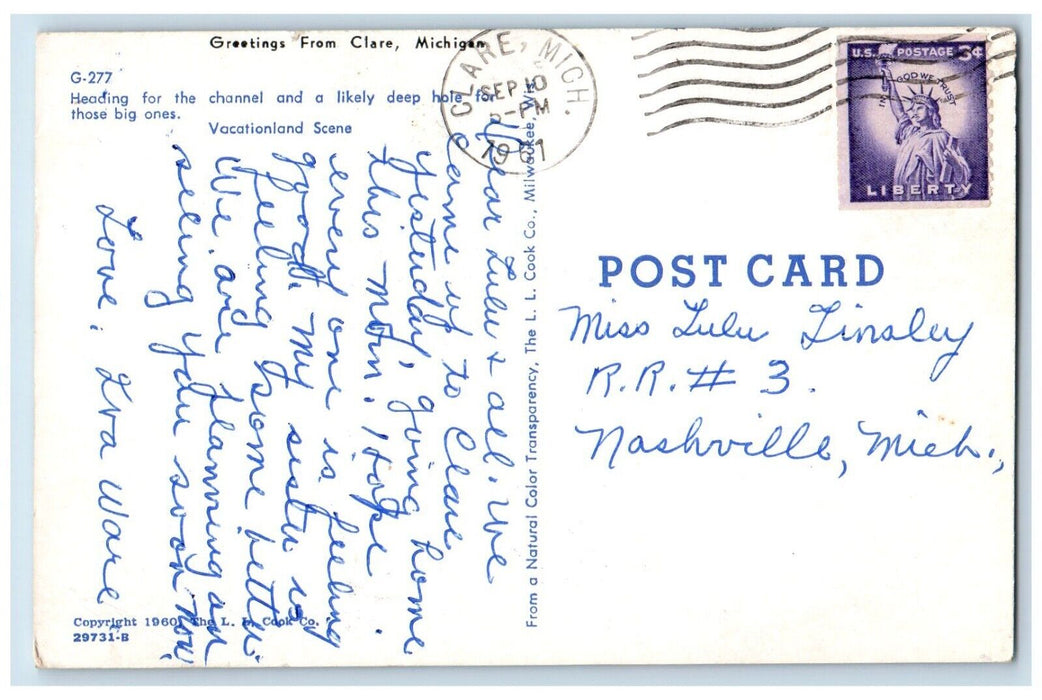 Greetings From Clare, Michigan
G-277
Heading for the channel and a likely deep hole for
those big ones.
Vacationland Scene
CLARE, MICH.
SEP 10
PM
1961
U.S. POSTAGE 3¢
IN GOD WE TRUST
LIBERTY
Dear Lulu & all. We
came up to Clare
yisterday, going home
this morn. Hope
every one is feeling
good. My sister is
feeling some better.
We are planning on
seeing you soon now.
Love. Iva Ware
From a Natural Color Transparency, The L. L. Cook Co., Milwaukee, Wis.
POST CARD
Miss Lulu Linsley
R.R. # 3.
Nashville, Mich.,
Copyright 1960, The L. L. Cook Co.
29731-B